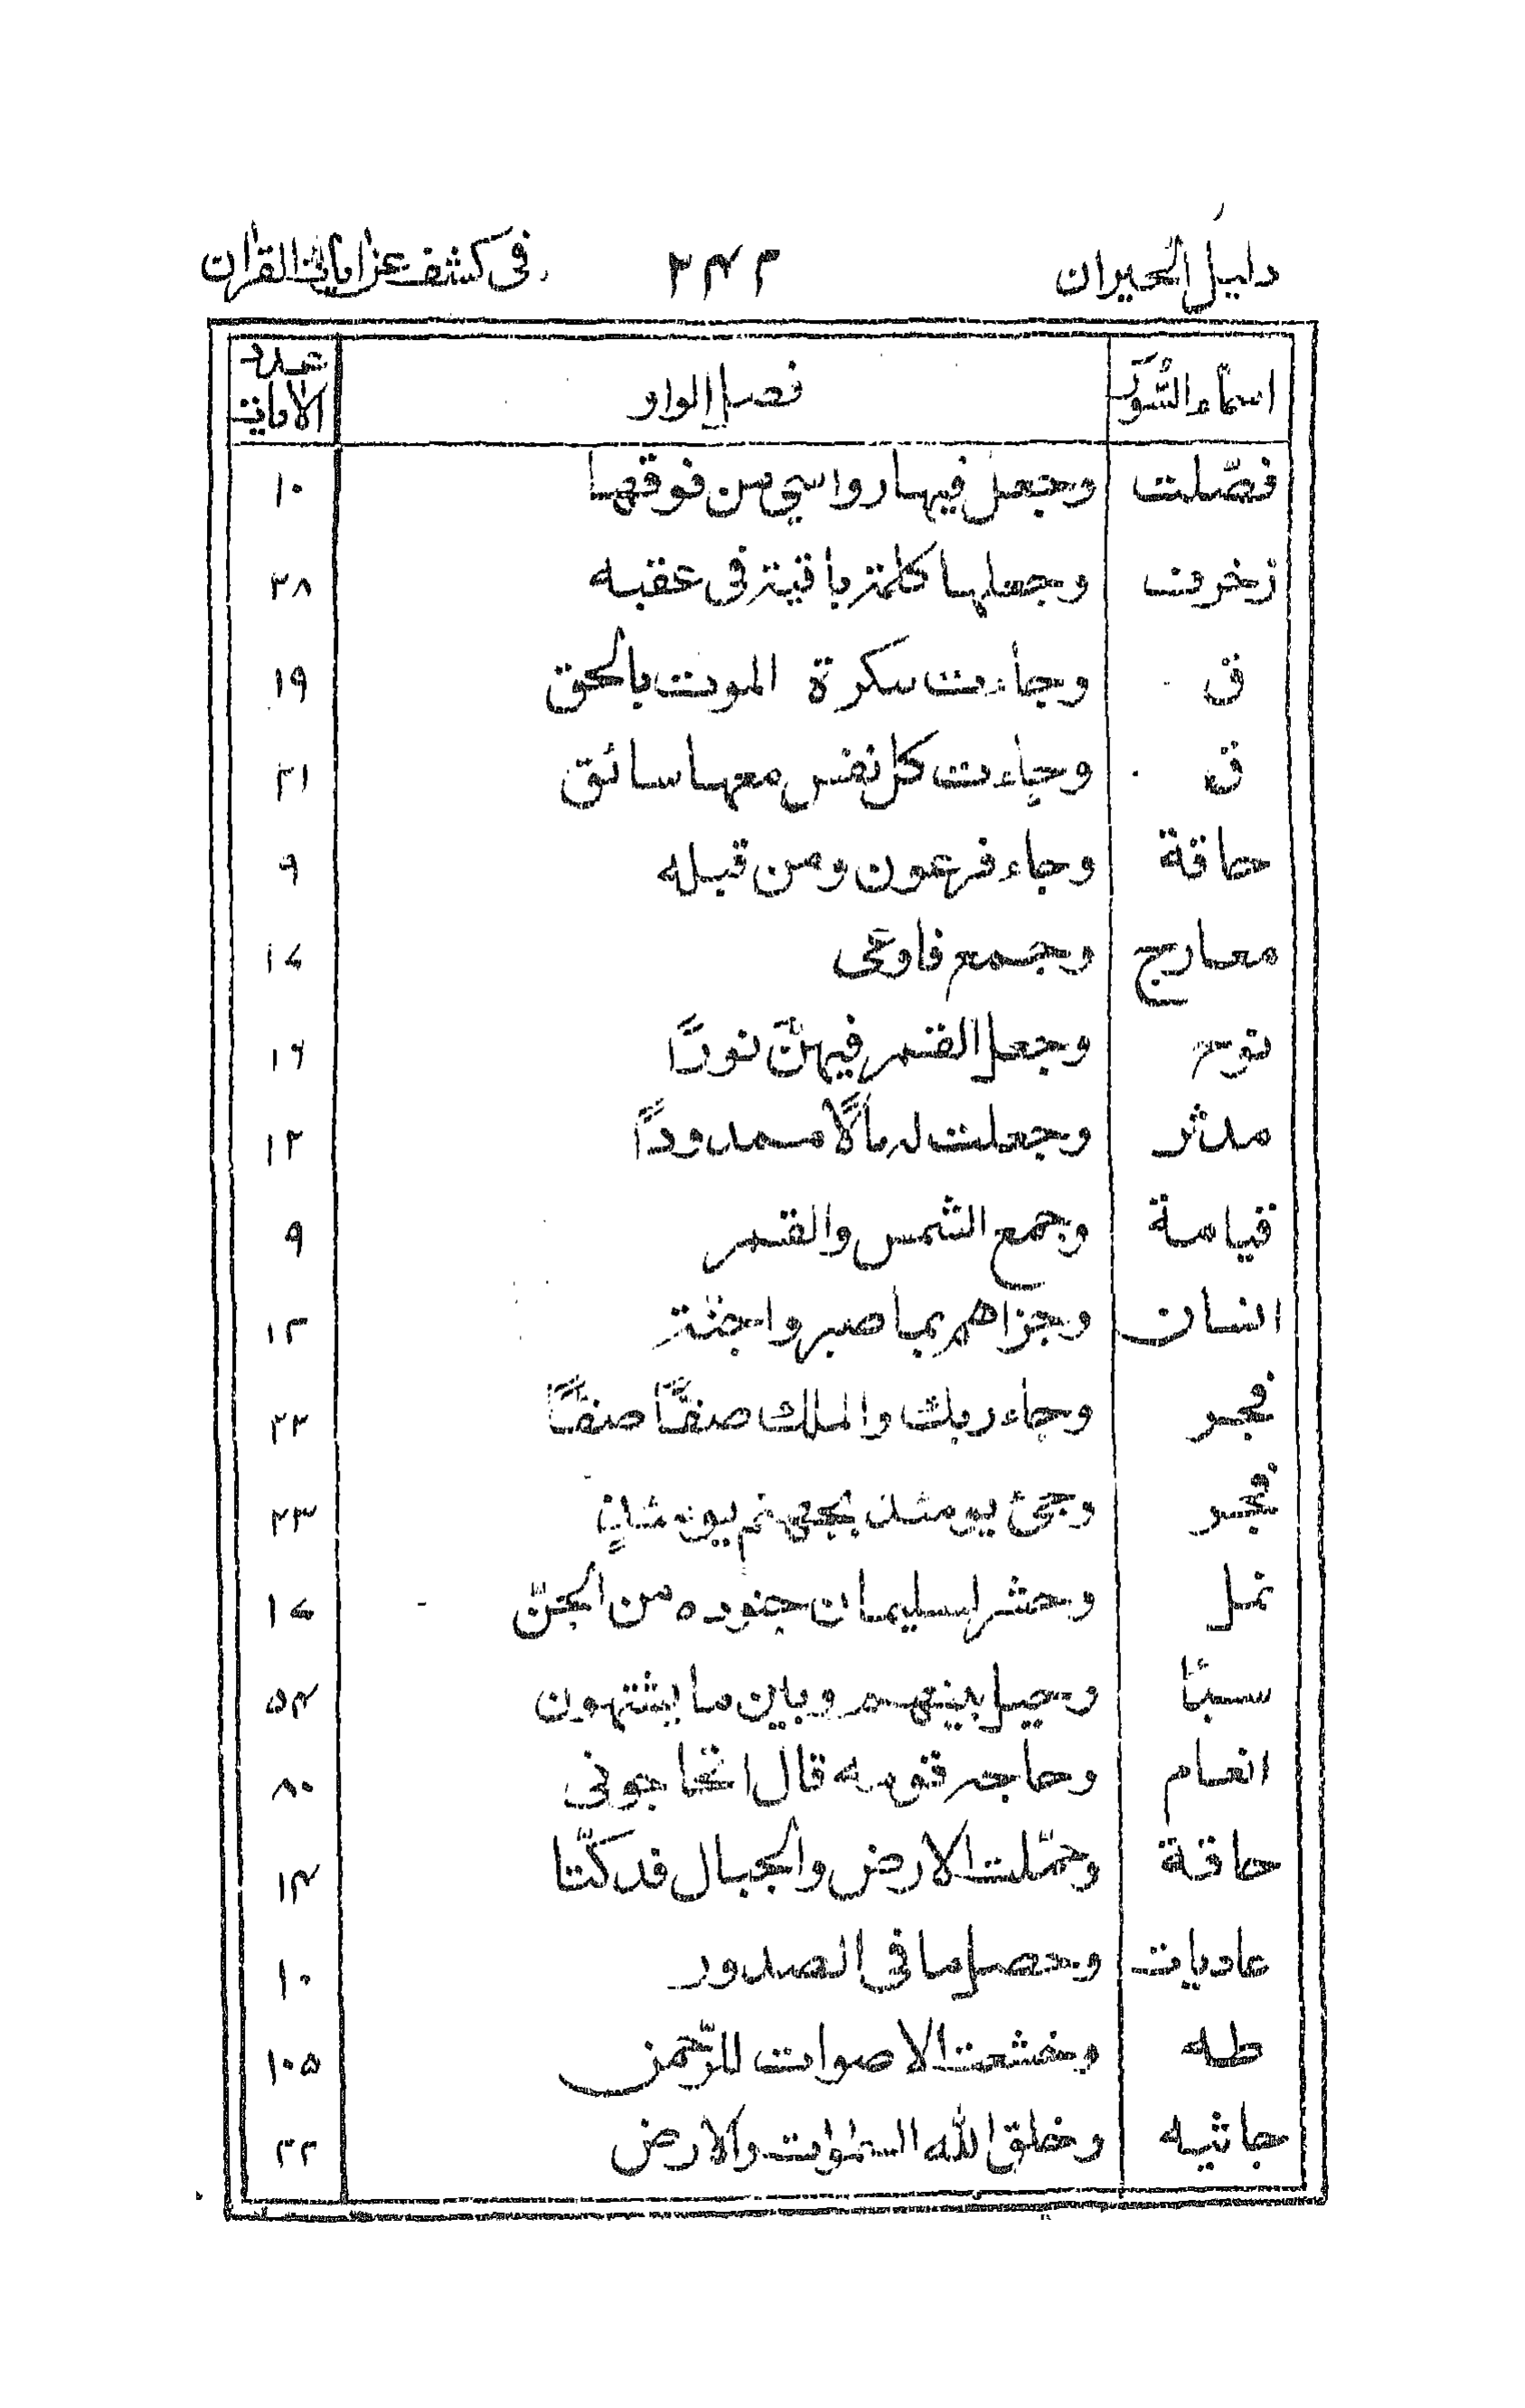 دليل الحيران ٢٤٢ فى كشف عن ايات القران
اسماء السُّوَر فصل الواو عدد الايات
فصّلت وجعل فيها رواسي من فوقها ١٠
زخرف وجعلها كلمة باقية فى عقبه ٢٨
ق وجاءت سكرة الموت بالحق ١٩
ق وجاءت كل نفس معها سائق ٢١
حاقة وجاء فرعون ومن قبله ٩
معارج وجمع فاوعى ١٨
نوح وجعل القمر فيهنّ نورًا ١٦
مدثر وجعلت له مالًا ممدودًا ١٢
قيامة وجمع الشمس والقمر ٩
انسان وجزاهم بما صبروا جنّة ١٢
فجر وجاء ربك والملك صفًّا صفًّا ٢٢
فجر وجئ يومئذ بجهنم يومئذٍ ٢٣
نمل وحشر لسليمان جنوده من الجنّ ١٧
سبأ وحيل بينهم وبين ما يشتهون ٥٤
انعام وحاجه قومه قال اتحاجونى ٨٠
حاقة وحمّلت الارض والجبال فدكّتا ١٤
عاديات وحصل ما فى الصدور ١٠
طه وخشعت الاصوات للرّحمن ١٠٥
جاثيه وخلق الله السمٰوات والارض ٢٢